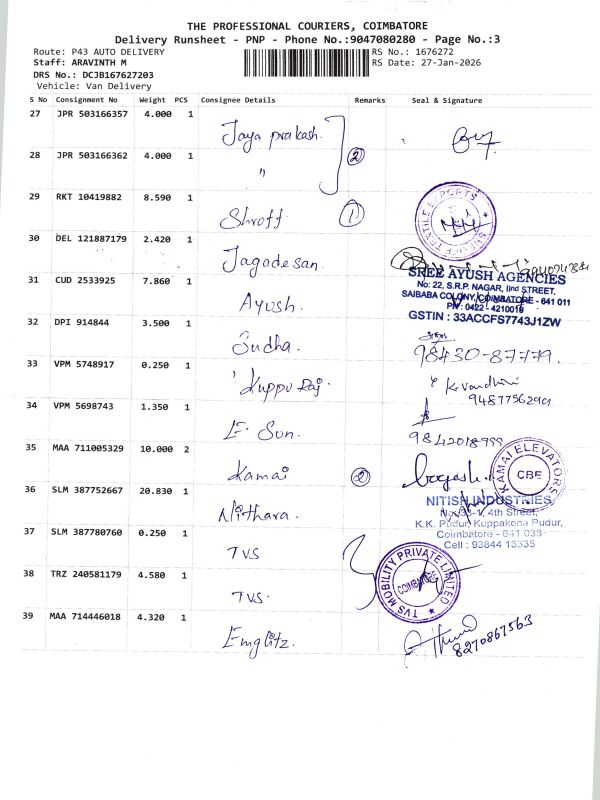 THE PROFESSIONAL COURIERS, COIMBATORE
Delivery Runsheet - PNP - Phone No.:9047080280 - Page No.:3
Route: P43 AUTO DELIVERY RS No.: 1676272
Staff: ARAVINTH M RS Date: 27-Jan-2026
DRS No.: DCJB167627203
Vehicle: Van Delivery
S No Consignment No Weight PCS Consignee Details Remarks Seal & Signature
27 JPR 503166357 4.000 1
Jaya prakash.
28 JPR 503166362 4.000 1 2
"
29 RKT 10419882 8.590 1
Shroff 1
SHROFF TEXTILE EXPORTS
30 DEL 121887179 2.420 1
Jagadesan
31 CUD 2533925 7.860 1
Ayush.
SREE AYUSH AGENCIES
No: 22, S.R.P. NAGAR, IInd STREET,
SAIBABA COLONY, COIMBATORE - 641 011
PH: 0422 - 4210019
GSTIN : 33ACCFS7743J1ZW
32 DPI 914844 3.500 1
Sudha.
98430-87779.
33 VPM 5748917 0.250 1
Kuppu Raj
34 VPM 5698743 1.350 1
E. Son.
35 MAA 711005329 10.000 2
Kamai 2
KAMAI ELEVATORS
CBE
36 SLM 387752667 20.830 1
Nithara.
NITISH INDUSTRIES
4th Street,
K.K. Pudur, Kuppakona Pudur,
Coimbatore - 641 033
Cell : 93844 13335
37 SLM 387780760 0.250 1
TVS
38 TRZ 240581179 4.580 1
TVS.
TVS MOBILITY PRIVATE LIMITED
COIMBATORE
39 MAA 714446018 4.320 1
Emglitz.
8270867563